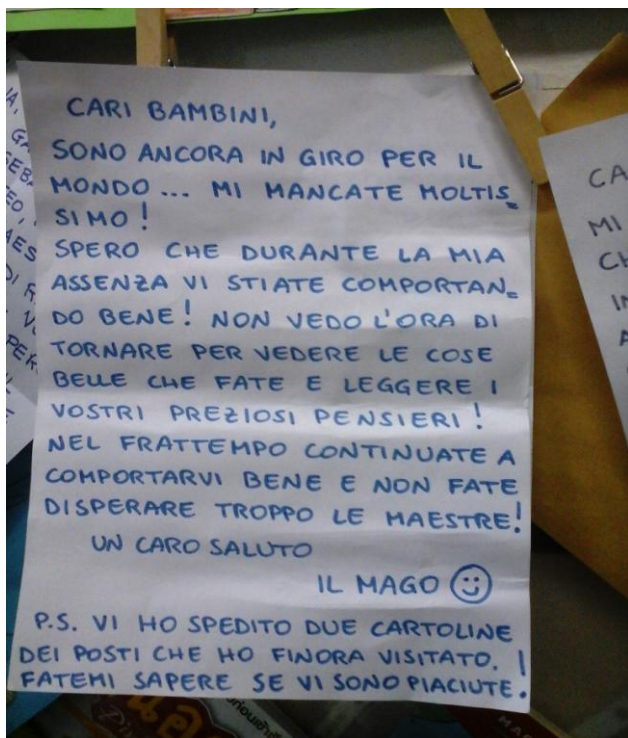 CARI BAMBINI,
SONO ANCORA IN GIRO PER IL
MONDO... MI MANCATE MOLTIS=
SIMO!
SPERO CHE DURANTE LA MIA
ASSENZA VI STIATE COMPORTAN=
DO BENE! NON VEDO L'ORA DI
TORNARE PER VEDERE LE COSE
BELLE CHE FATE E LEGGERE I
VOSTRI PREZIOSI PENSIERI!
NEL FRATTEMPO CONTINUATE A
COMPORTARVI BENE E NON FATE
DISPERARE TROPPO LE MAESTRE!
UN CARO SALUTO
IL MAGO
P.S. VI HO SPEDITO DUE CARTOLINE
DEI POSTI CHE HO FINORA VISITATO.
FATEMI SAPERE SE VI SONO PIACIUTE!
CA
MI
CH